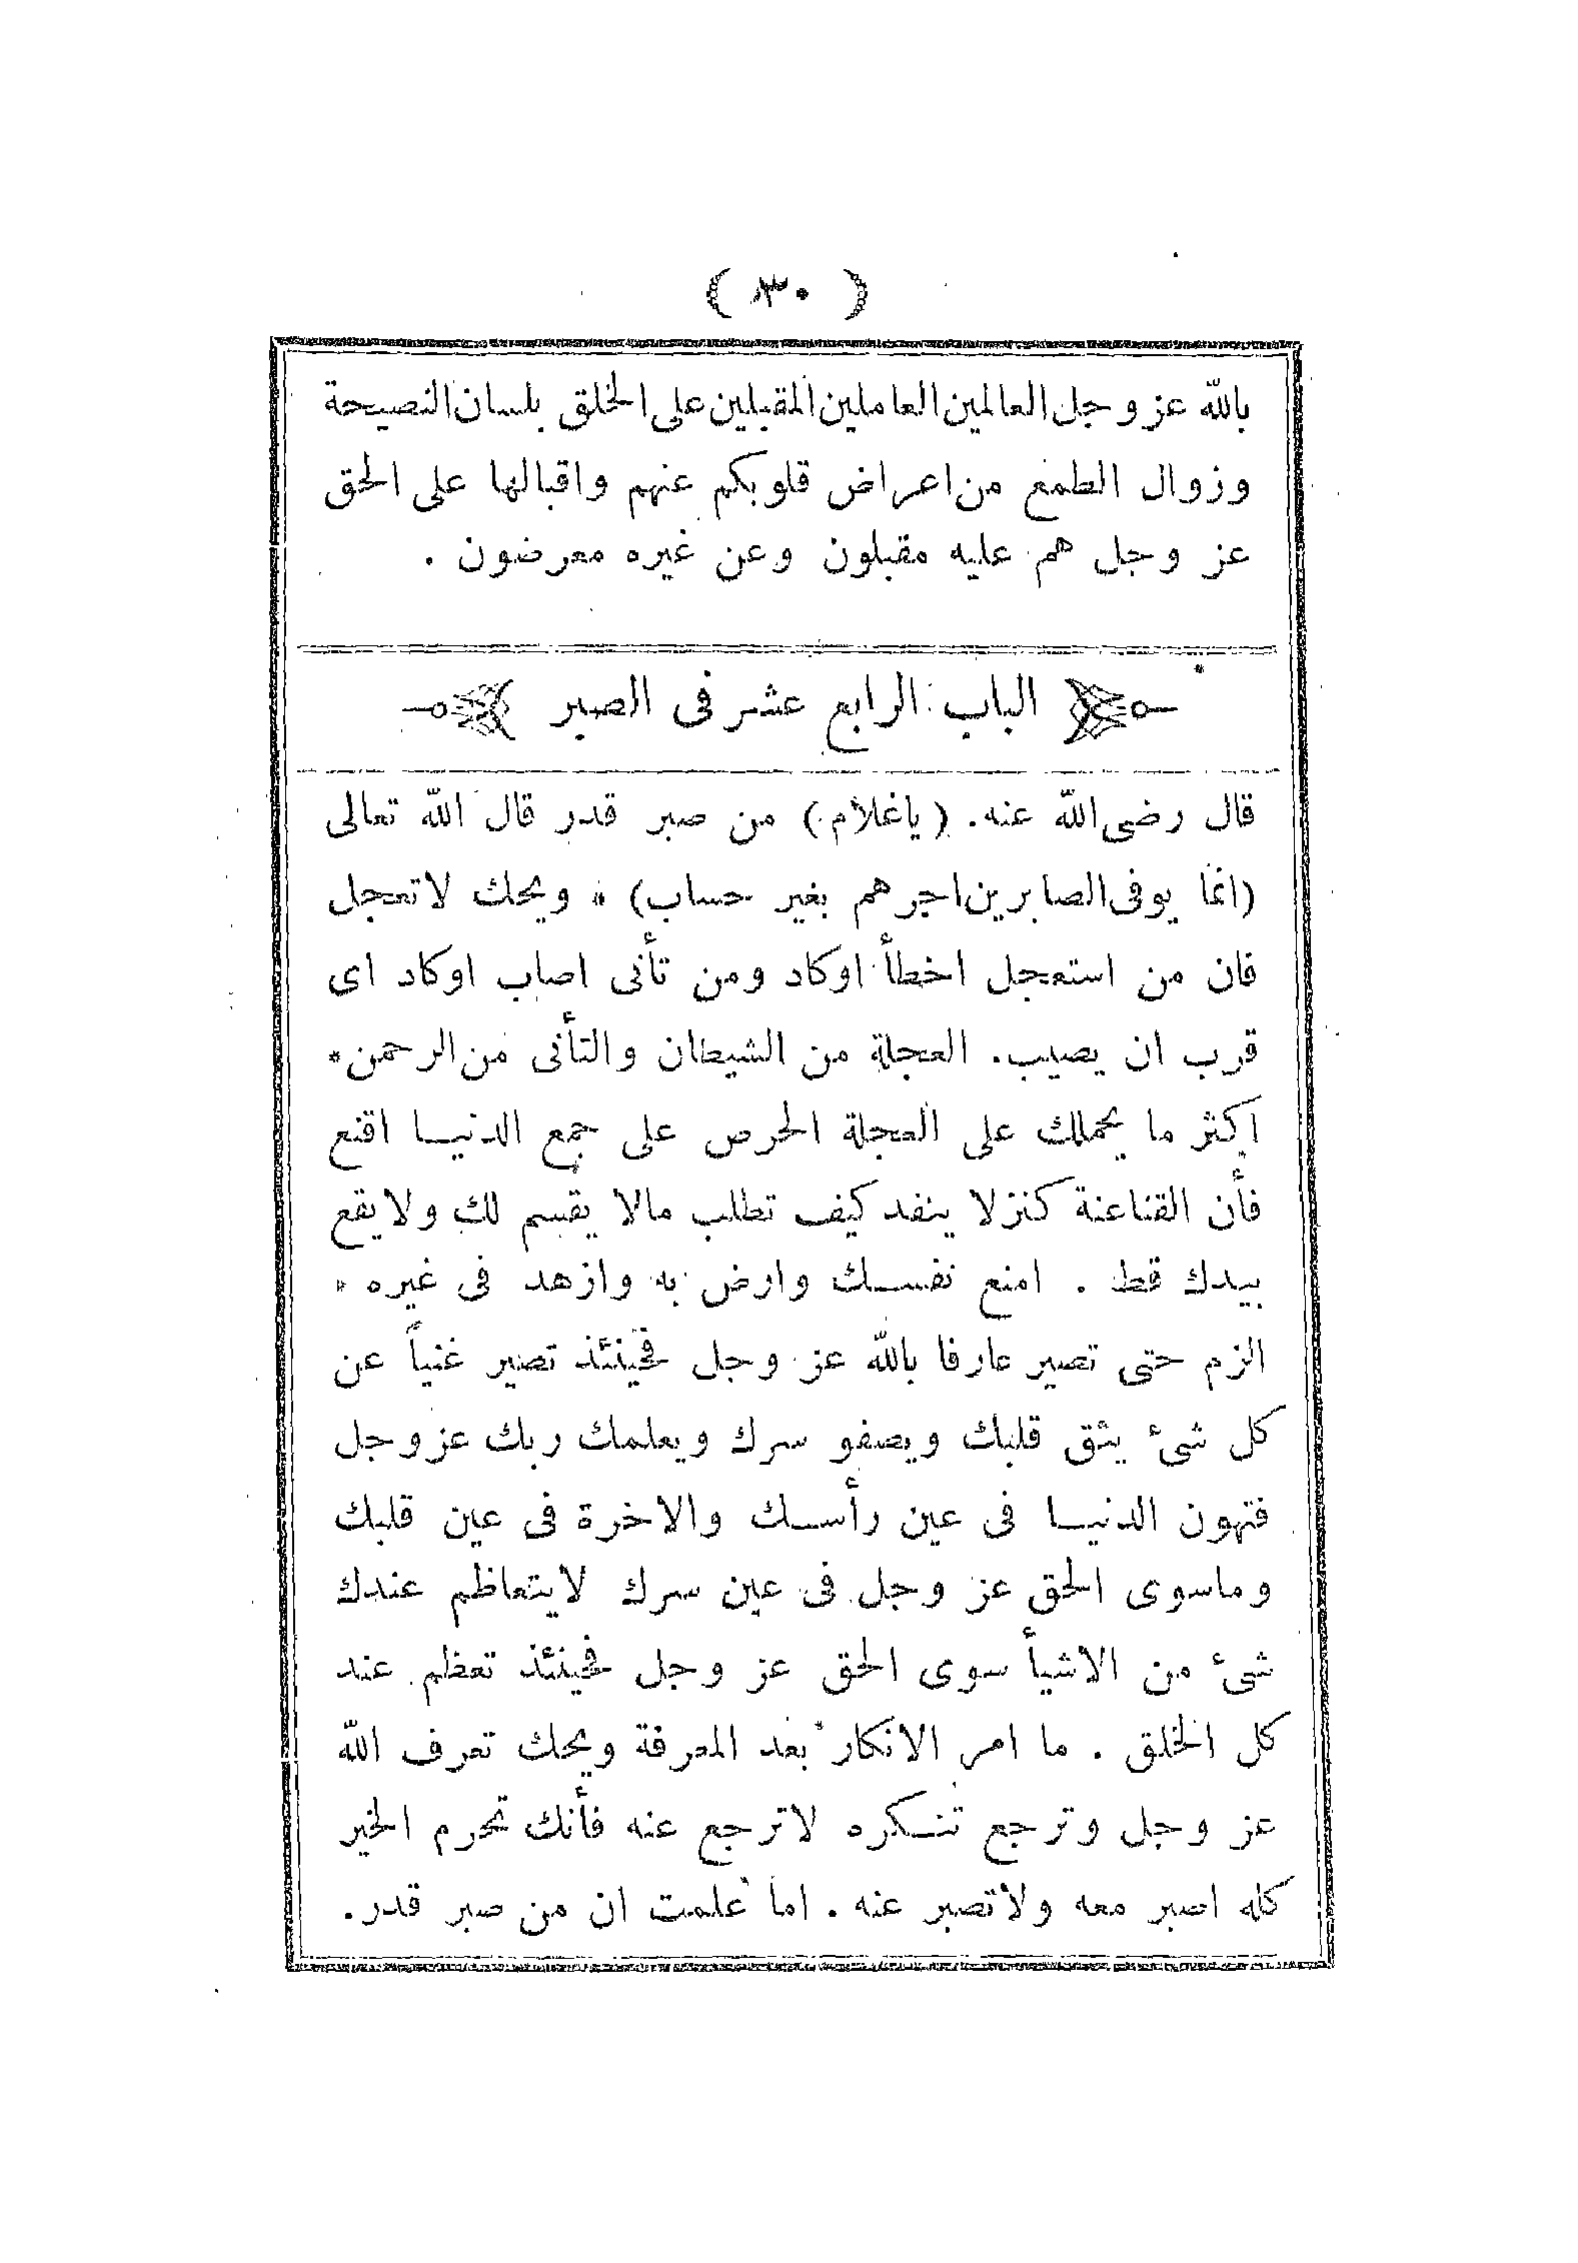 ( ٣٠ )
بالله عز وجل العالمين العاملين المقبلين على الخلق بلسان النصيحة
وزوال الطمع من اعراض قلوبكم عنهم واقبالها على الحق
عز وجل هم عليه مقبلون وعن غيره معرضون .
الباب الرابع عشر فى الصبر
قال رضى الله عنه . ( ياغلام ) من صبر قدر قال الله تعالى
(انما يوفى الصابرين اجرهم بغير حساب) * ويحك لاتعجل
فان من استعجل اخطأ اوكاد ومن تأنى اصاب اوكاد اى
قرب ان يصيب . العجلة من الشيطان والتأنى من الرحمن *
اكثر ما يحملك على العجلة الحرص على جمع الدنيا اقنع
فأن القناعنة كنز لا ينفد كيف تطلب مالا يقسم لك ولا يقع
بيدك قط . امنع نفسك وارض به وازهد فى غيره *
الزم حتى تصير عارفا بالله عز وجل فحينئذ تصير غنياً عن
كل شىء يثق قلبك ويصفو سرك ويعلمك ربك عز وجل
فتهون الدنيا فى عين رأسك والاخرة فى عين قلبك
وماسوى الحق عز وجل فى عين سرك لايتعاظم عندك
شىء من الاشيأ سوى الحق عز وجل فحينئذ تعظم عند
كل الخلق . ما امر الانكار بعد المعرفة ويحك تعرف الله
عز وجل وترجع تنكره لاترجع عنه فأنك تحرم الخير
كله اصبر معه ولاتصبر عنه . اما علمت ان من صبر قدر .